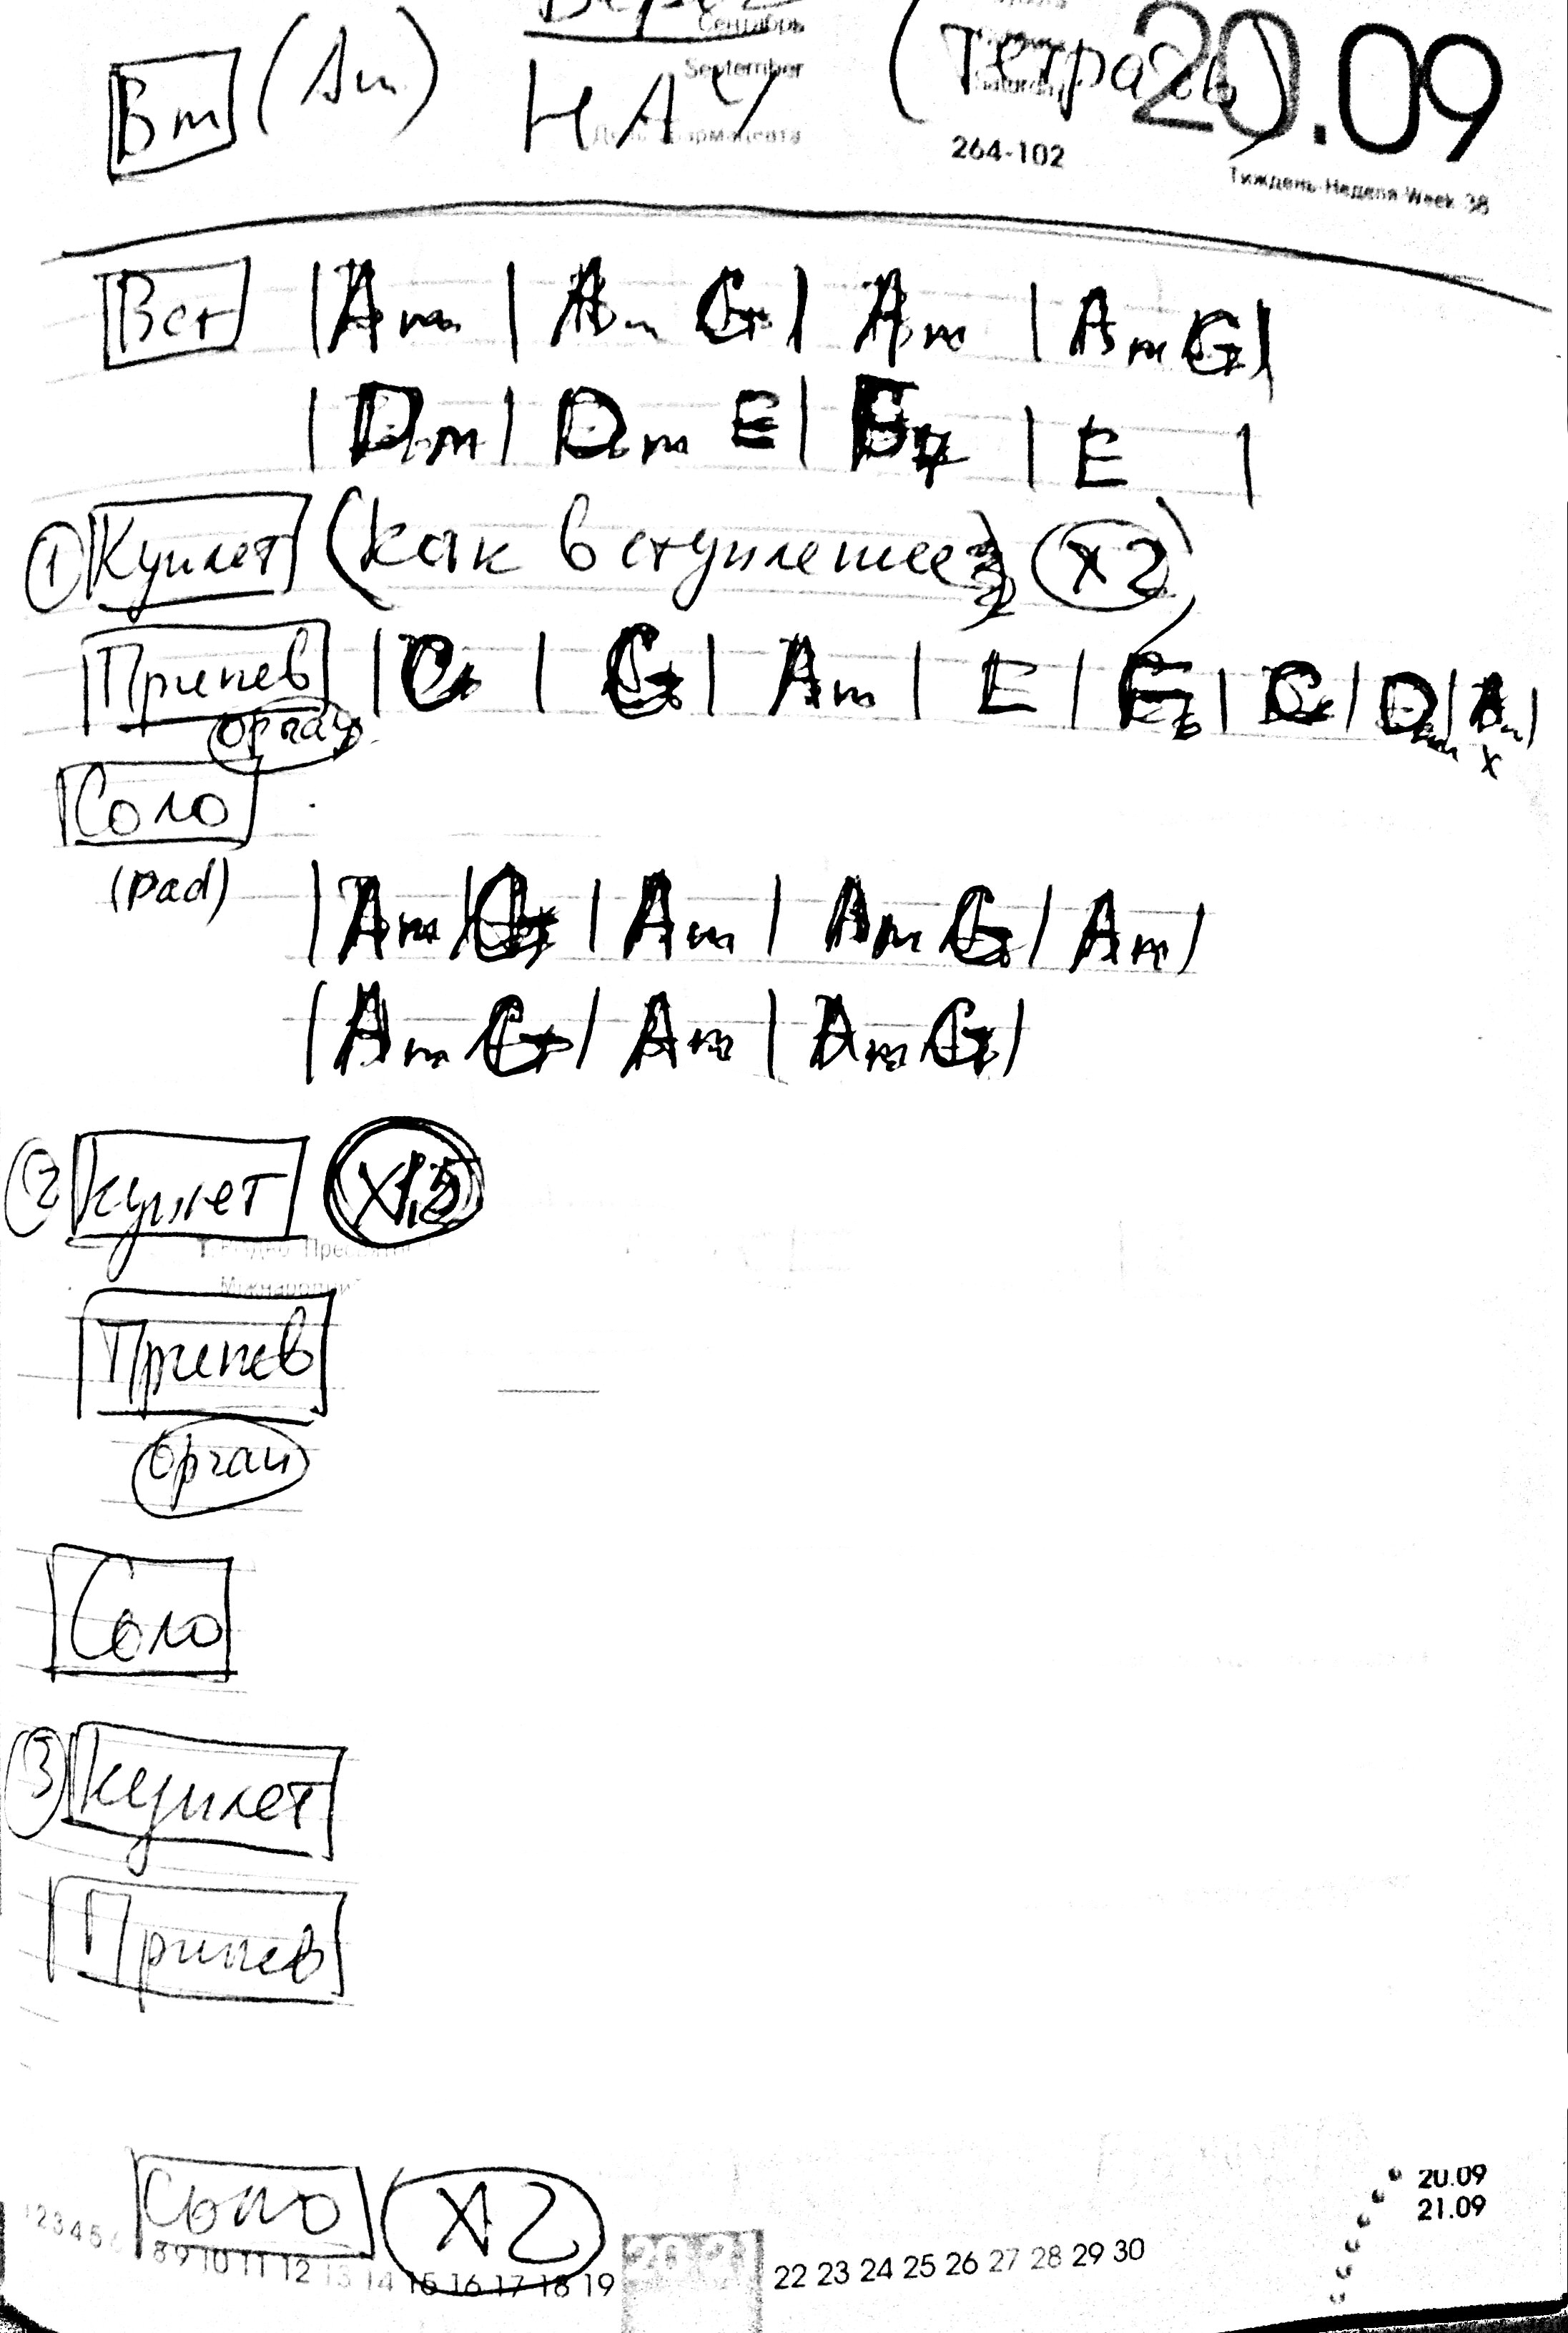 Вересень
Сентябрь
September
20.09
Bm (Am) НАУ (Тетрадь)
264-102
Тиждень-Неделя-Week 38
Вст | Am | Am G | Am | Am G |
| Dm | Dm E | E7 | E |
① Куплет (как вступление) x2
Припев | C | G | Am | E | | C | Dm | Am |
орган x
Соло
(pad) | Am | G | Am | Am G | Am |
| Am G | Am | Am G |
② куплет x1,5
Припев
орган
Соло
③ куплет
Припев
20.09
21.09
Соло x2
1 2 3 4 5 6 8 9 10 11 12 13 14 15 16 17 18 19 20 21 22 23 24 25 26 27 28 29 30